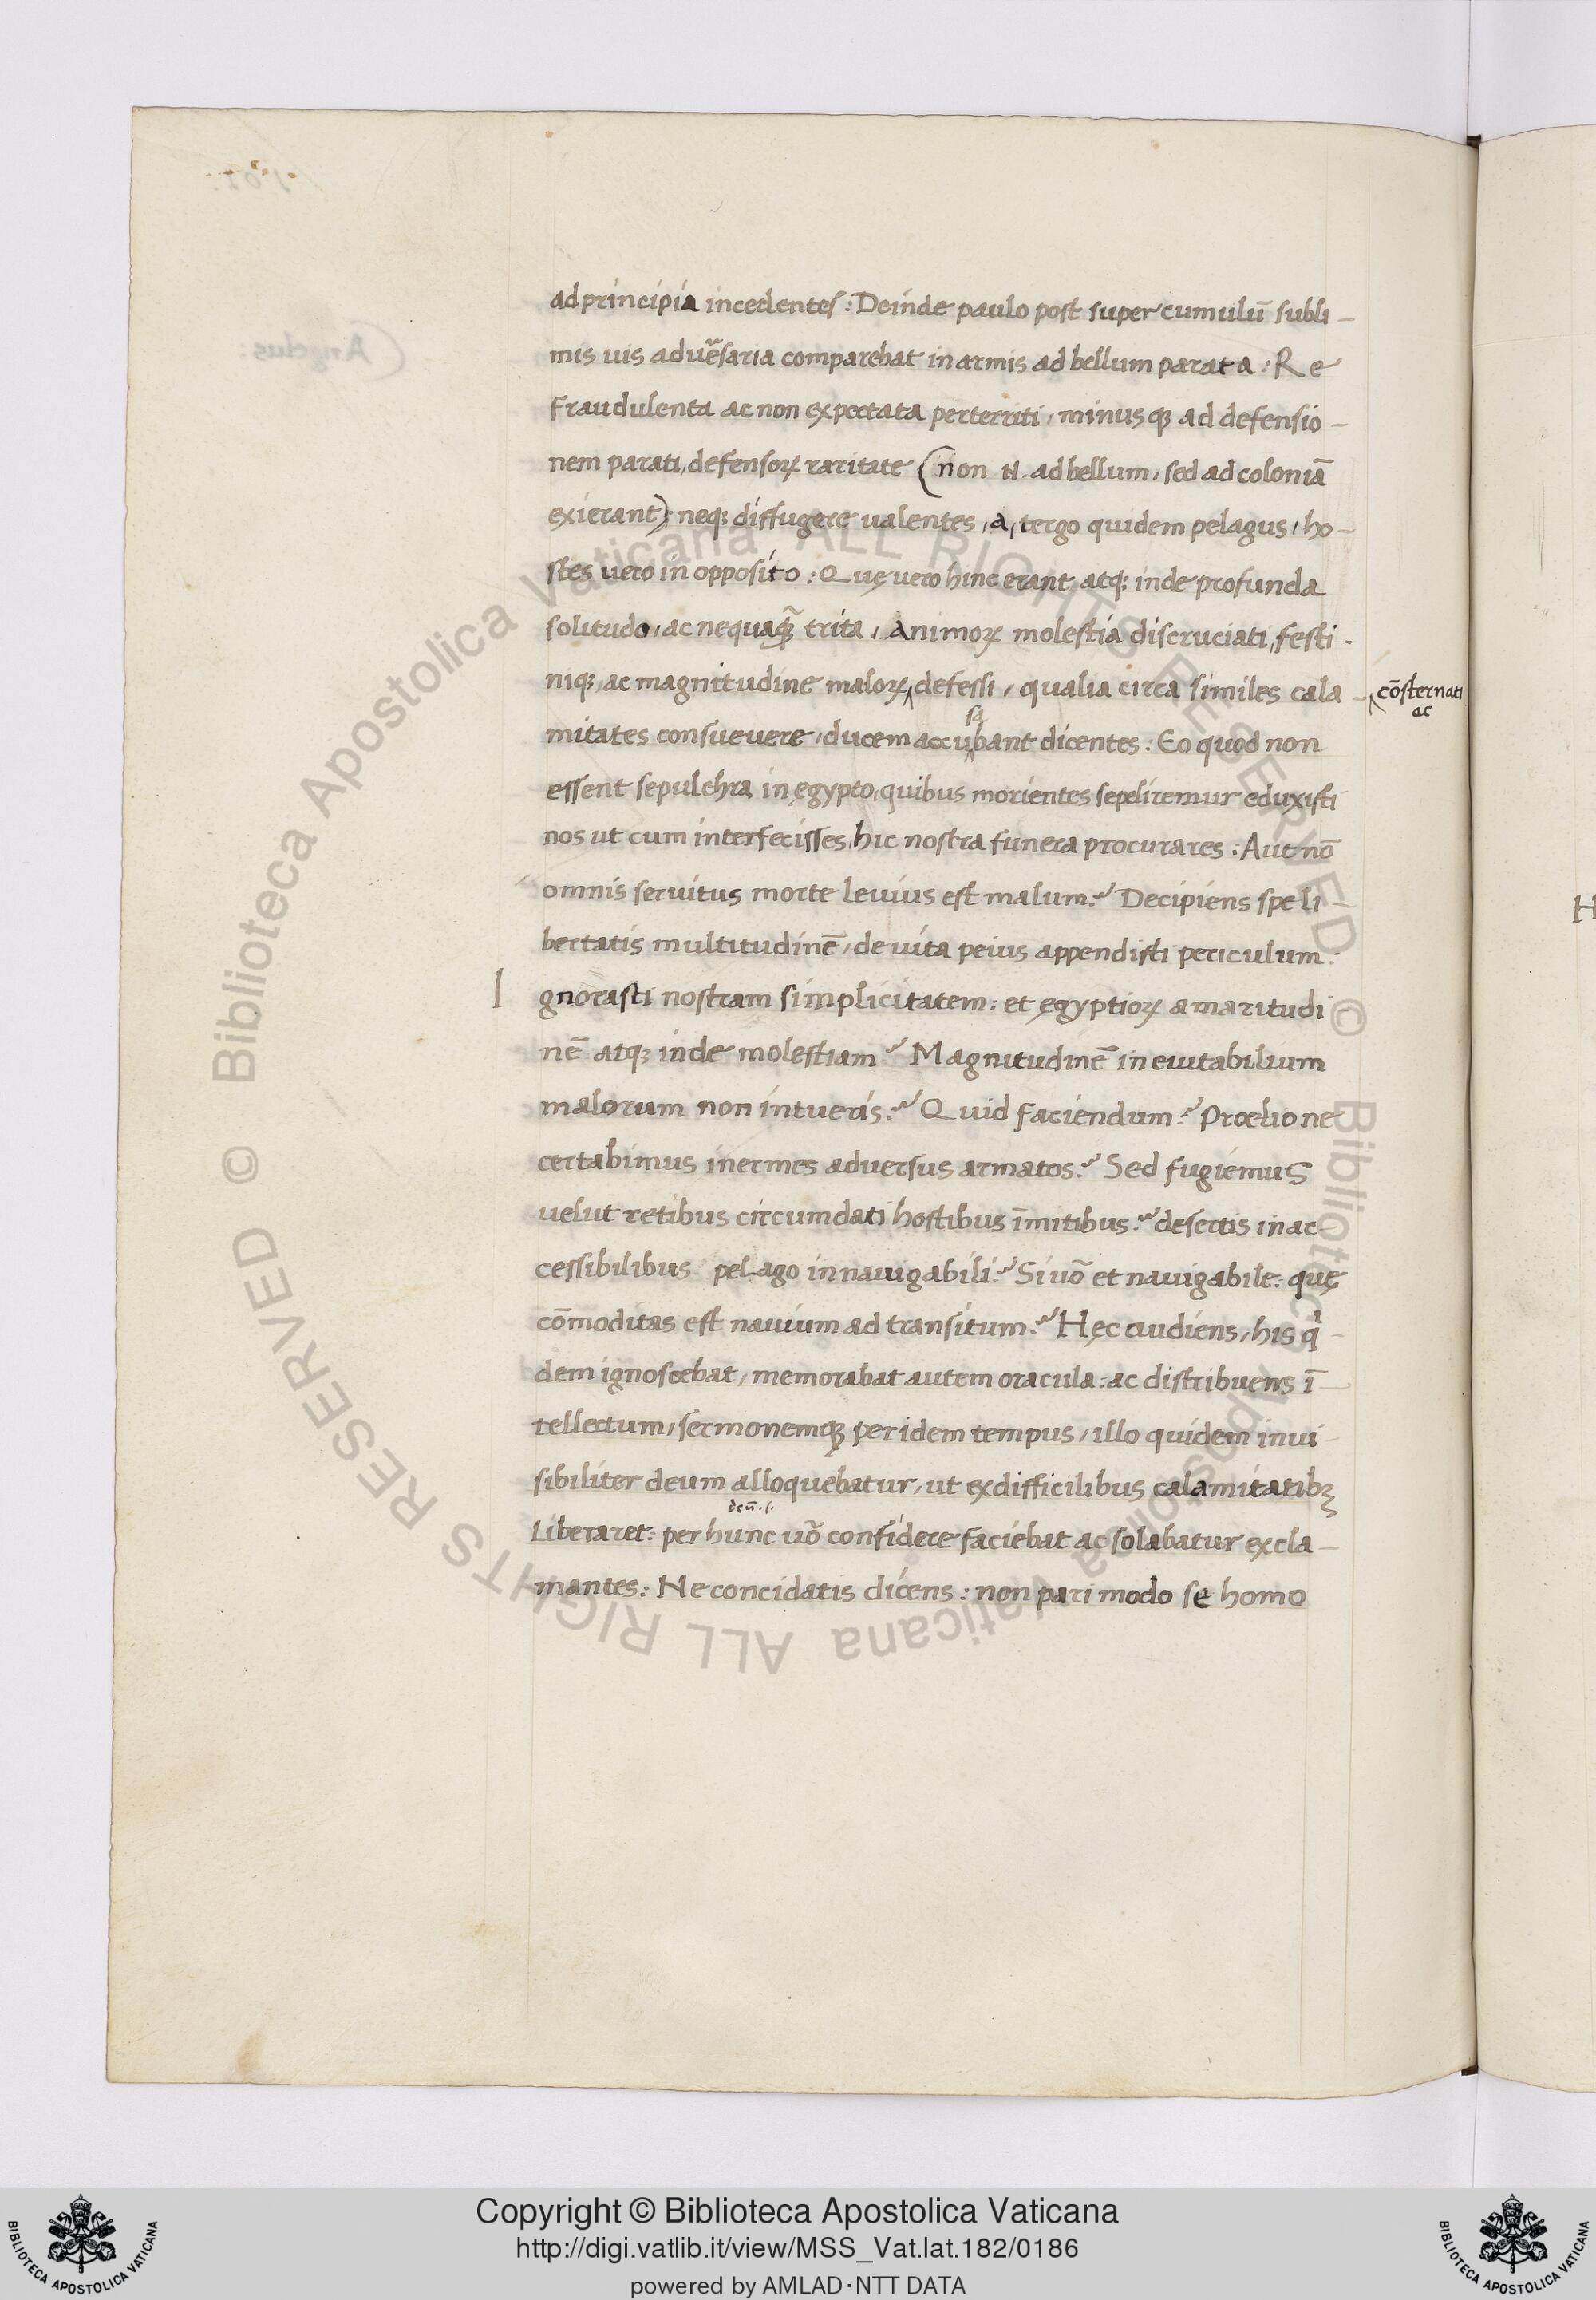 ad principia incedentes : Deinde paulo post super cumulū subli-
mis uis aduēsaria comparebat in armis ad bellum parata : Re
fraudulenta ac non expectata perterriti, minusq; ad defensio-
nem parati, defensoꝝ raritate (non .N. ad bellum, sed ad coloniā
exierant) neq; diffugere ualentes, a, tergo quidem pelagus, ho-
stes uero in opposito : Quę uero hinc erant atq; inde profunda
solitudo, ac nequaq̃ trita, Animoꝝ molestia discruciati, festi-
niq;, ac magnitudine maloꝝ ‸ defessi, qualia circa similes cala-
‸ cōsternati
ac
mitates consuevere, ducem accu‸bant dicentes : Eo quod non
sa
essent sepulchra in ęgypto, quibus morientes sepeliremur eduxisti
nos ut cum interfecisses, hic nostra funera procurares : Aut nō
omnis seruitus morte leuius est malum? Decipiens spe li-
bertatis multitudinē, de uita peius appendisti periculum :
I gnorasti nostram simplicitatem : et ęgyptioꝝ amaritudi
nē atq; inde molestiam? Magnitudinē ineuitabilium
malorum non intueris? Quid faciendum? Prœlio ne
certabimus inermes adversus armatos? Sed fugiemus
uelut retibus circumdati hostibus īmitibus? desertis inac-
cessibilibus pelago innauigabili? Si uō et nauigabile : quę
cōmoditas est nauium ad transitum? Hęc audiens, his qͥ-
dem ignoscebat, memorabat autem oracula : ac distribuens ī-
tellectum, sermonemq; per idem tempus, illo quidem inui-
sibiliter deum alloquebatur, ut ex difficilibus calamitatibꝫ
Liberaret : per hunc uō confidere faciebat ac solabatur excla-
mantes : Ne concidatis dicens : non pari modo se homo
Copyright © Biblioteca Apostolica Vaticana
http://digi.vatlib.it/view/MSS_Vat.lat.182/0186
powered by AMLAD·NTT DATA
BIBLIOTECA APOSTOLICA VATICANA
BIBLIOTECA APOSTOLICA VATICANA
© Biblioteca Apostolica Vaticana ALL RIGHTS RESERVED © Biblioteca Apostolica Vaticana ALL RIGHTS RESERVED